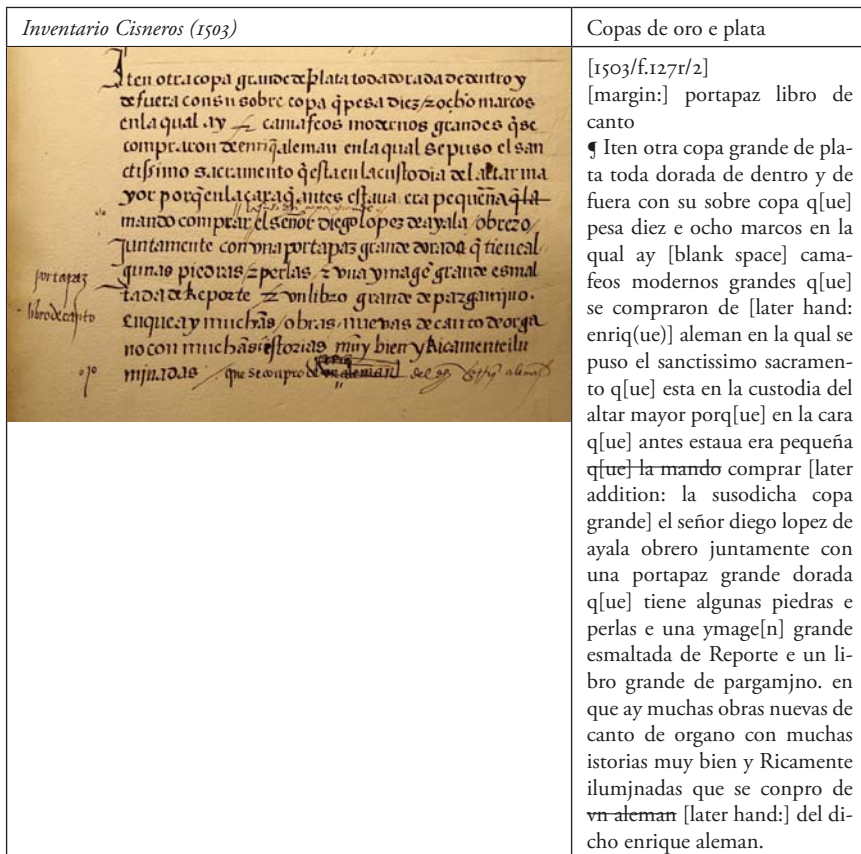 Inventario Cisneros (1503)
Copas de oro e plata
Iten otra copa grande de plata toda dorada de dentro y
de fuera con su sobre copa q̃ pesa diez / z ocho marcos
en la qual ay camafeos modernos grandes q̃ se
compraron de enriq̃ aleman en la qual se puso el san
ctissimo sacramento q̃ esta en la custodia del altar ma
yor porq̃ en la cara q̃ antes estaua era pequeña q̃ la
mando comprar el señor diego lopez de ayala / obrero /
Juntamente con vna portapaz grande dorada q̃ tiene al
gunas piedras / z perlas / z vna ymagẽ grande esmal
tada de Reporte / z vn libro grande de pargamjno.
en que ay muchas / obras / nuevas de canto de orga
no con muchas istorias muy bien y Ricamente ilu
mjnadas / que se conpro de vn aleman del aleman
portapaz
libro de canto
[1503/f.127r/2]
[margin:] portapaz libro de
canto
¶ Iten otra copa grande de pla-
ta toda dorada de dentro y de
fuera con su sobre copa q[ue]
pesa diez e ocho marcos en la
qual ay [blank space] cama-
feos modernos grandes q[ue]
se compraron de [later hand:
enriq(ue)] aleman en la qual se
puso el sanctissimo sacramen-
to q[ue] esta en la custodia del
altar mayor porq[ue] en la cara
q[ue] antes estaua era pequeña
q[ue] la mando comprar [later
addition: la susodicha copa
grande] el señor diego lopez de
ayala obrero juntamente con
una portapaz grande dorada
q[ue] tiene algunas piedras e
perlas e una ymage[n] grande
esmaltada de Reporte e un li-
bro grande de pargamjno. en
que ay muchas obras nuevas de
canto de organo con muchas
istorias muy bien y Ricamente
ilumjnadas que se conpro de
vn aleman [later hand:] del di-
cho enrique aleman.